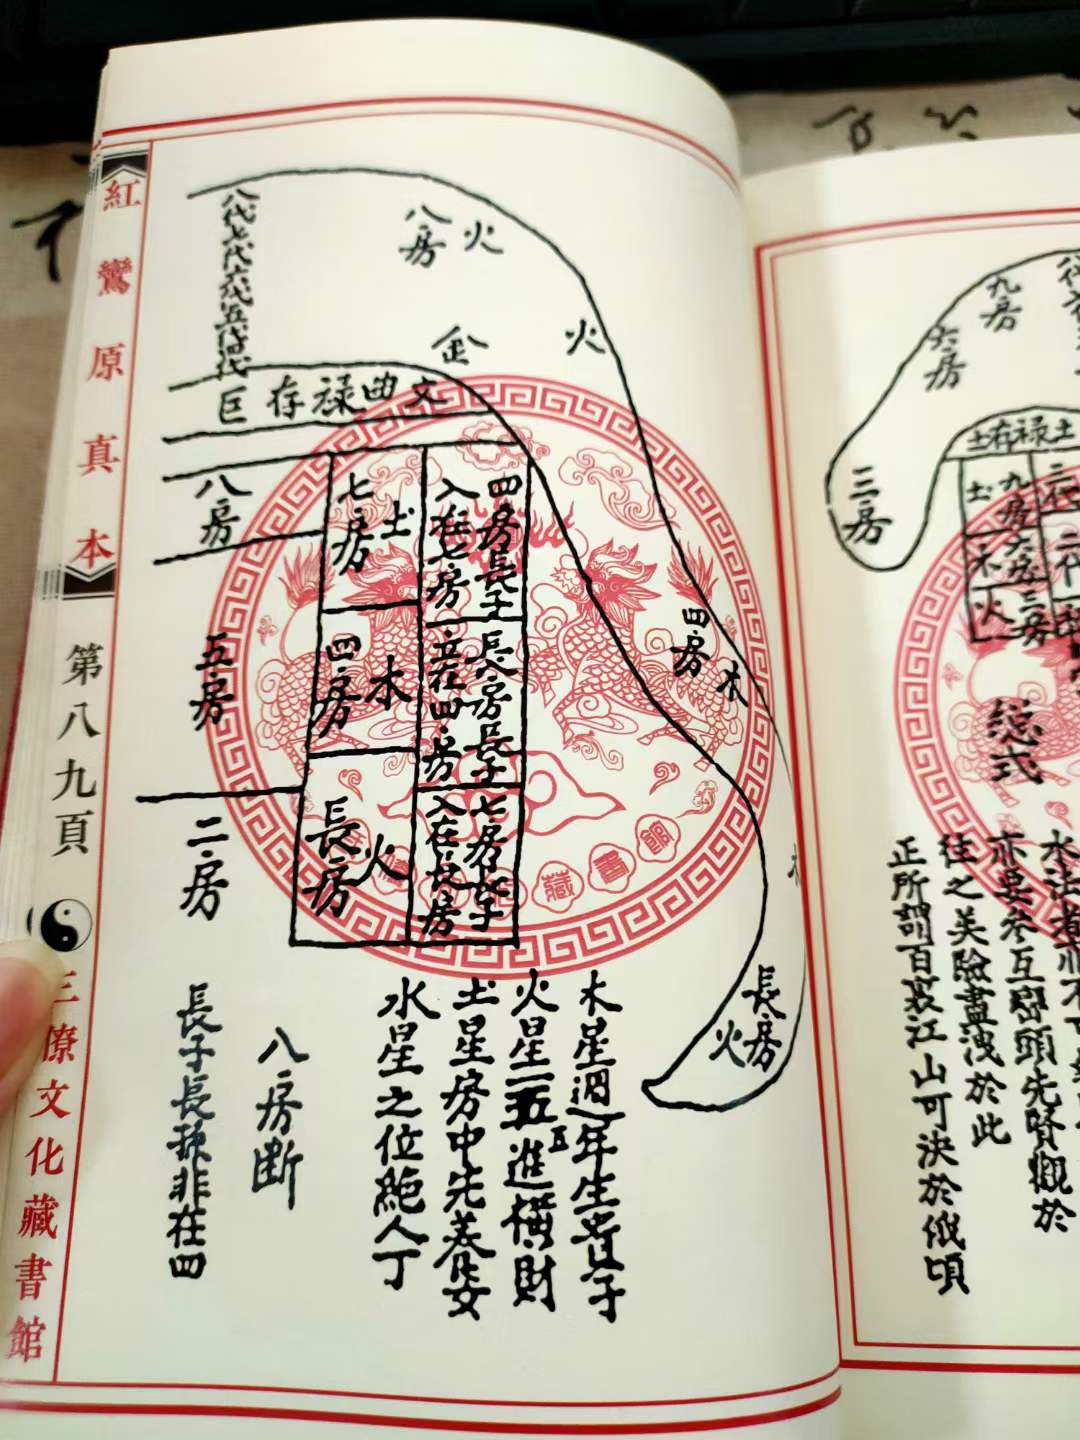 紅鸞原真本
第八九頁
三僚文化藏書館
八代七代六代五代四代
八房
火
金
火
文曲祿存巨
八房
七房
土
四房長子
入在七房
五房
四房
木
長八房長子
立在四房
四房
木
二房
長房
火
七房長子
入在長房
藏書館
長房
火
木星過年生貴子
火星一五進橫財
土星房中先養女
水星之位絶人丁
八房斷
長子長孫非在四
九房
六房
三房
土祿存土
土
九房
二代
木
六房
二代
火
三房
總式
亦要參互巒頭先賢觀於
往之美險盡洩於此
正所謂百裏江山可決於俄頃